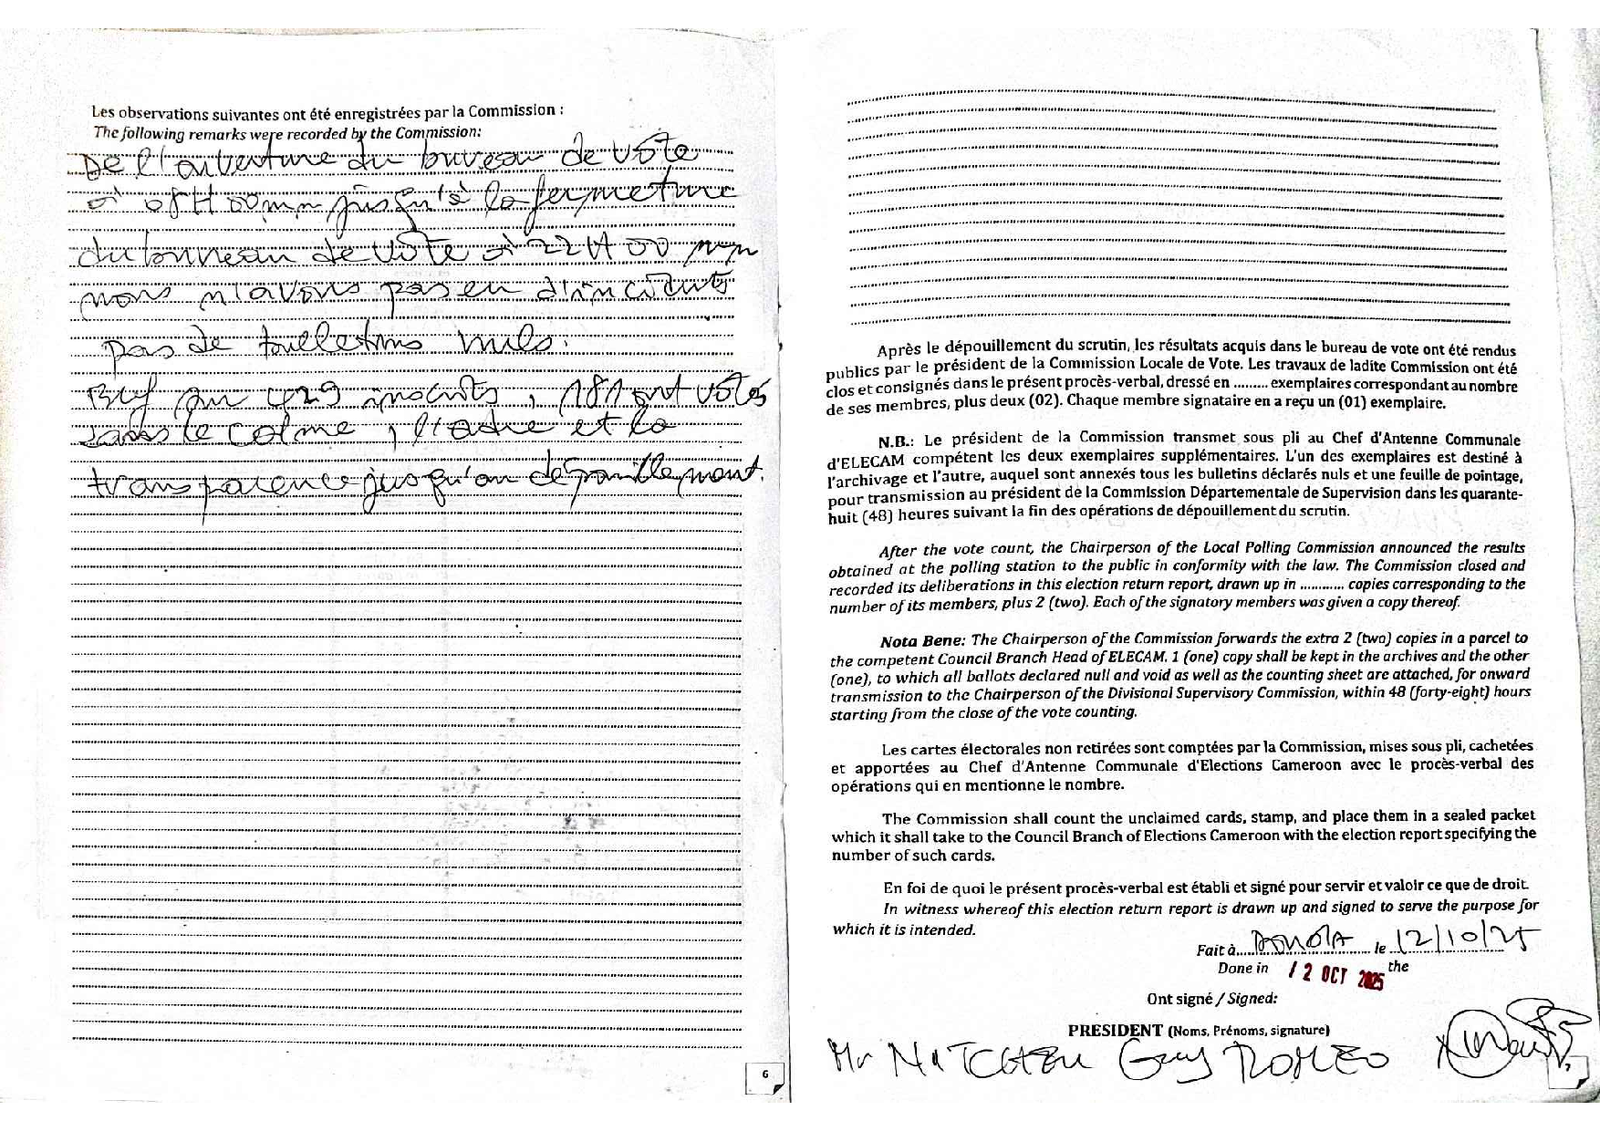 Les observations suivantes ont été enregistrées par la Commission :
The following remarks were recorded by the Commission:
De l'ouverture du bureau de vote
à 08H 00mn jusqu'à la fermeture
du bureau de vote à 22H 00 mn
nous n'avons pas eu d'incidents
pas de bulletins nuls.
Bref sur 429 inscrits, 181 ont votés
dans le calme, l'ordre et la
transparence jusqu'au dépouillement.
6
Après le dépouillement du scrutin, les résultats acquis dans le bureau de vote ont été rendus
publics par le président de la Commission Locale de Vote. Les travaux de ladite Commission ont été
clos et consignés dans le présent procès-verbal, dressé en ......... exemplaires correspondant au nombre
de ses membres, plus deux (02). Chaque membre signataire en a reçu un (01) exemplaire.
N.B.: Le président de la Commission transmet sous pli au Chef d'Antenne Communale
d'ELECAM compétent les deux exemplaires supplémentaires. L'un des exemplaires est destiné à
l'archivage et l'autre, auquel sont annexés tous les bulletins déclarés nuls et une feuille de pointage,
pour transmission au président de la Commission Départementale de Supervision dans les quarante-
huit (48) heures suivant la fin des opérations de dépouillement du scrutin.
After the vote count, the Chairperson of the Local Polling Commission announced the results
obtained at the polling station to the public in conformity with the law. The Commission closed and
recorded its deliberations in this election return report, drawn up in ........... copies corresponding to the
number of its members, plus 2 (two). Each of the signatory members was given a copy thereof.
Nota Bene: The Chairperson of the Commission forwards the extra 2 (two) copies in a parcel to
the competent Council Branch Head of ELECAM. 1 (one) copy shall be kept in the archives and the other
(one), to which all ballots declared null and void as well as the counting sheet are attached, for onward
transmission to the Chairperson of the Divisional Supervisory Commission, within 48 (forty-eight) hours
starting from the close of the vote counting.
Les cartes électorales non retirées sont comptées par la Commission, mises sous pli, cachetées
et apportées au Chef d'Antenne Communale d'Elections Cameroon avec le procès-verbal des
opérations qui en mentionne le nombre.
The Commission shall count the unclaimed cards, stamp, and place them in a sealed packet
which it shall take to the Council Branch of Elections Cameroon with the election report specifying the
number of such cards.
En foi de quoi le présent procès-verbal est établi et signé pour servir et valoir ce que de droit.
In witness whereof this election return report is drawn up and signed to serve the purpose for
which it is intended.
Fait à le 12/10/25
Done in 12 OCT 2025 the
Ont signé / Signed:
PRESIDENT (Noms, Prénoms, signature)
Mr Guy ROMEO
7